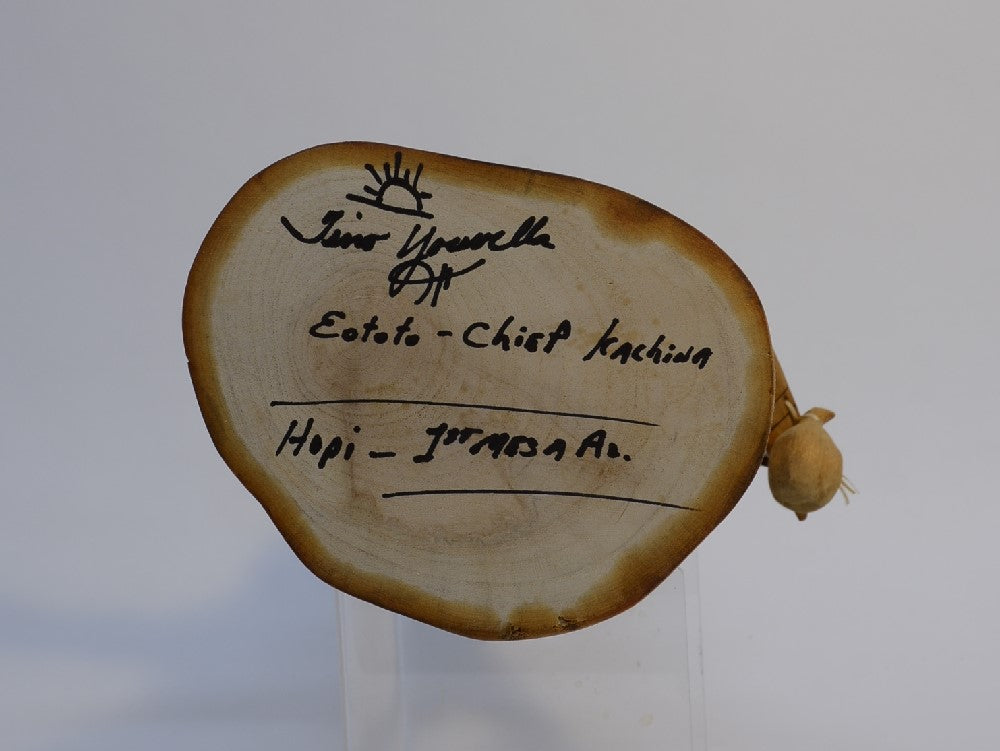 Tino Youvella
Eototo - Chief Kachina
Hopi - 1st MESA Az.